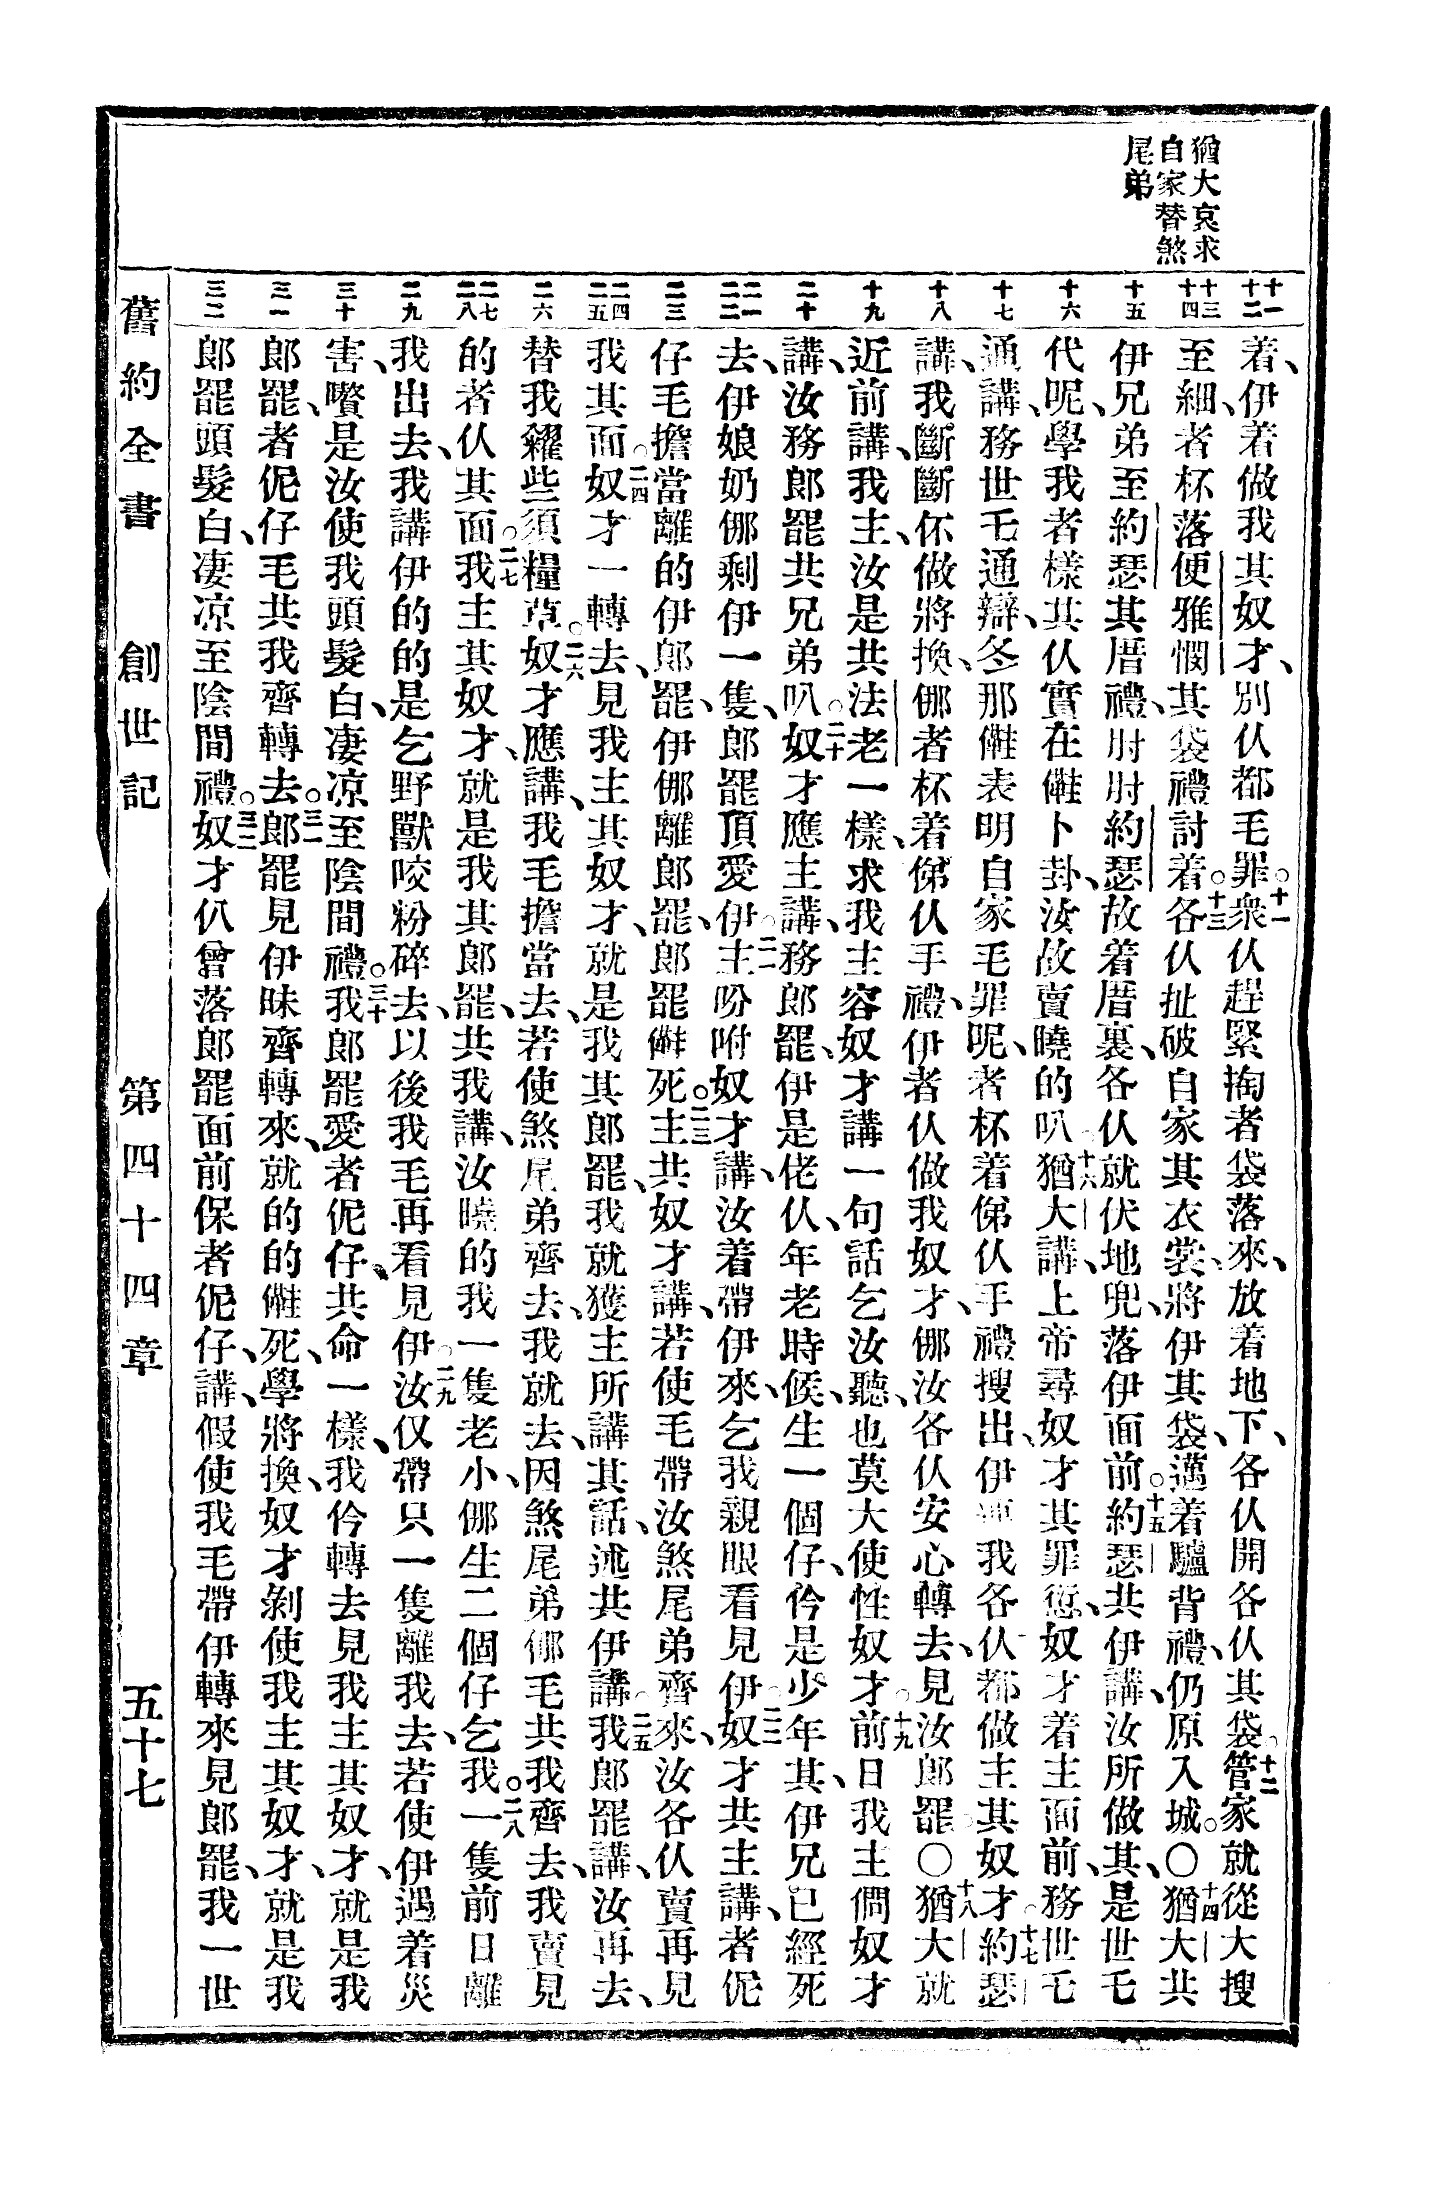 猶大哀求
自家替煞
尾弟
十一
十二
十三
十四
十五
十六
十七
十八
十九
二十
二一
二二
二三
二四
二五
二六
二七
二八
二九
三十
三一
三二
着、伊着做我其奴才、別仈都毛罪。十一衆仈趕緊掏者袋落來、放着地下、各仈開各仈其袋。十二管家就從大搜
至細、者杯落便雅憫其袋禮討着。十三各仈扯破自家其衣裳、將伊其袋、邁着驢背禮、仍原入城。○十四猶大共
伊兄弟至約瑟其厝禮、肘肘約瑟故着厝裏、各仈就伏地兜、落伊面前。十五約瑟共伊講、汝所做其、是世乇
代呢、學我者樣其仈實在㑚卜卦、汝故賣曉的叭。十六猶大講、上帝尋奴才其罪愆、奴才着主面前、務世乇
通講、務世乇通辯、仒那㑚表明自家毛罪呢、者杯着俤仈手禮搜出、伊連我各仈都做主其奴才。十七約瑟
講、我斷斷伓做將換、㑚者杯着俤仈手禮、伊者仈做我奴才、㑚汝各仈安心轉去、見汝郎罷。○十八猶大就
近前講、我主、汝是共法老一樣、求我主容奴才講一句話乞汝聽、也莫大使性奴才。十九前日我主僩奴才
講、汝務郎罷共兄弟叭。二十奴才應主講、務郎罷、伊是佬仈、年老時候、生一個仔、仱是少年其、伊兄已經死
去、伊娘奶㑚剩伊一隻、郎罷頂愛伊。二一主吩咐奴才講、汝着帶伊來、乞我親眼看見伊。二二奴才共主講、者伲
仔毛擔當離的伊郎罷、伊㑚離郎罷、郎罷㑚死。二三主共奴才講、若使毛帶汝煞尾弟齊來、汝各仈賣再見
我其面。二四奴才一轉去、見我主其奴才、就是我其郎罷、我就獲主所講其話、述共伊講。二五我郎罷講、汝再去、
替我糴些須糧草。二六奴才應講、我毛擔當去、若使煞尾弟齊去、我就去、因煞尾弟㑚毛共我齊去、我賣見
的者仈其面。二七我主其奴才、就是我其郎罷、共我講、汝曉的我一隻老小、㑚生二個仔乞我。二八一隻前日離
我出去、我講伊的的是乞野獸咬粉碎去、以後我毛再看見伊。二九汝仅帶只一隻離我去、若使伊遇着災
害、嚽是汝使我頭髮白、凄凉至陰間禮。三十我郎罷愛者伲仔、共命一樣、我仱轉去見我主其奴才、就是我
郎罷、者伲仔毛共我齊轉去。三一郎罷見伊昧齊轉來、就的的㑚死、學將換、奴才剝使我主其奴才、就是我
郎罷頭髮白、凄凉至陰間禮。三二奴才仈曾落郎罷面前保者伲仔、講、假使我毛帶伊轉來見郎罷、我一世
舊約全書　創世記　第四十四章　五十七